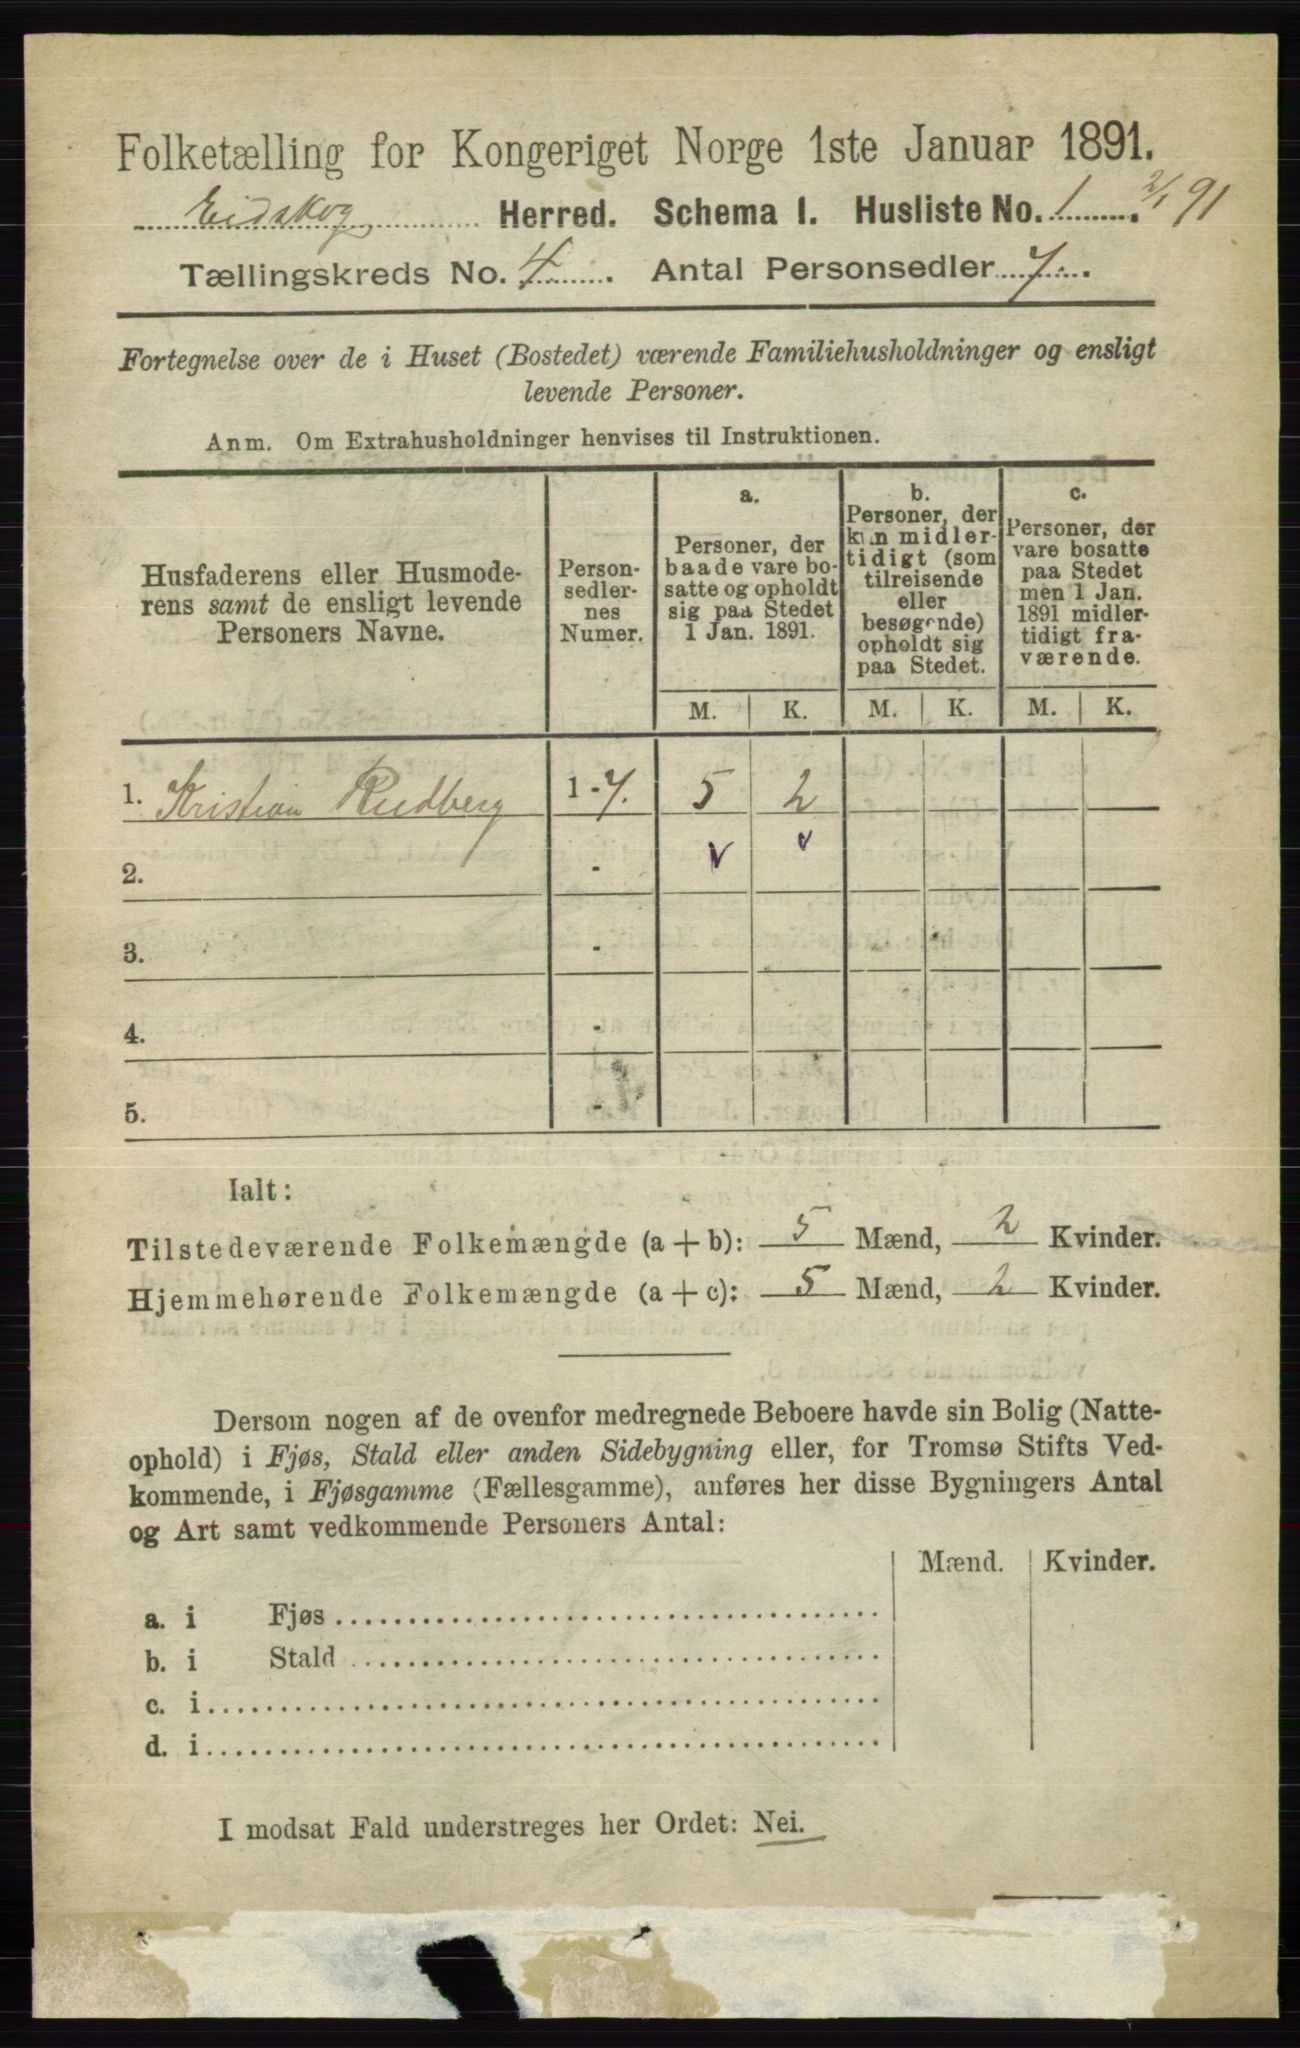 Folketælling for Kongeriget Norge 1ste Januar 1891.
Eidskog Herred. Schema I. Husliste No. 1. 2/1 91
Tællingskreds No. 4. Antal Personsedler 7.
Fortegnelse over de i Huset (Bostedet) værende Familiehusholdninger og ensligt
levende Personer.
Anm. Om Extrahusholdninger henvises til Instruktionen.
Husfaderens eller Husmode-
rens samt de ensligt levende
Personers Navne.
Person-
sedler-
nes
Numer.
a.
Personer, der
baade vare bo-
satte og opholdt
sig paa Stedet
1 Jan. 1891.
b.
Personer, der
kun midler-
tidigt (som
tilreisende
eller
besøgende)
opholdt sig
paa Stedet.
c.
Personer, der
vare bosatte
paa Stedet
men 1 Jan.
1891 midler-
tidigt fra-
værende.
M. K. M. K. M. K.
1. Kristian Rudberg 1 - 7. 5 2
2. - v v
3. -
4. -
5. -
Ialt:
Tilstedeværende Folkemængde (a + b): 5 Mænd, 2 Kvinder.
Hjemmehørende Folkemængde (a + c): 5 Mænd, 2 Kvinder.
Dersom nogen af de ovenfor medregnede Beboere havde sin Bolig (Natte-
ophold) i Fjøs, Stald eller anden Sidebygning eller, for Tromsø Stifts Ved-
kommende, i Fjøsgamme (Fællesgamme), anføres her disse Bygningers Antal
og Art samt vedkommende Personers Antal:
Mænd. Kvinder.
a. i Fjøs
b. i Stald
c. i
d. i
I modsat Fald understreges her Ordet: Nei.